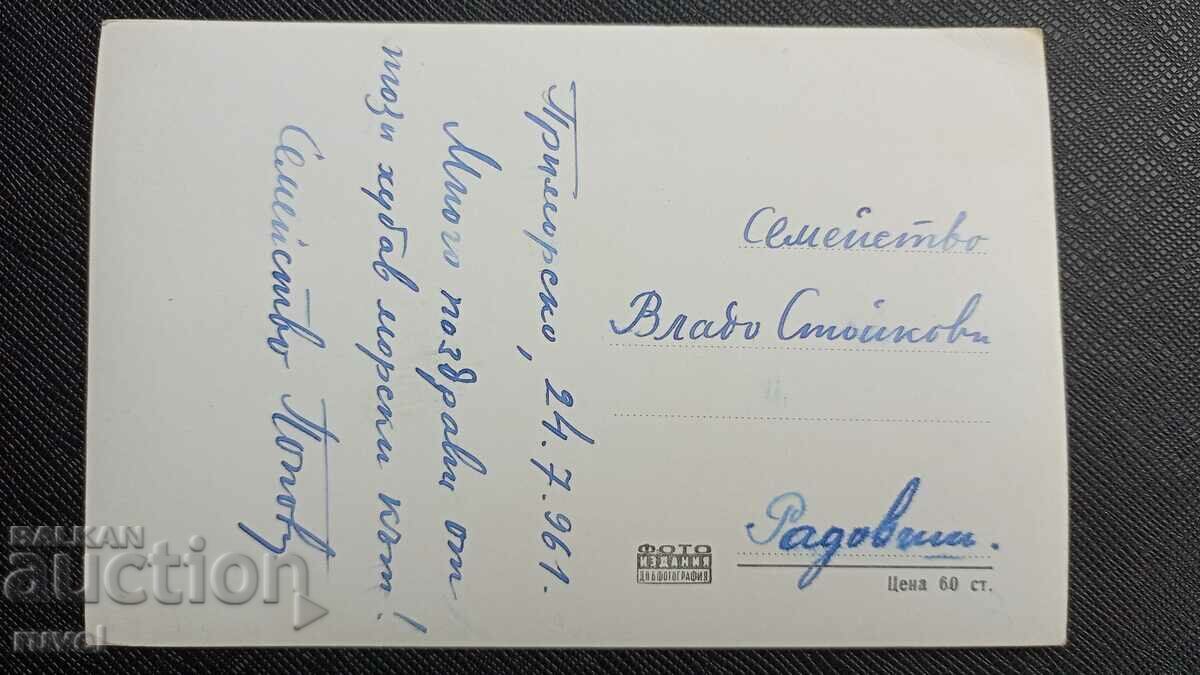 Приморско, 24.7.961.
Много поздрави от
този хубав морски кът!
Семейство Попови
Семейство
Владо Стойкови
Радовиш.
ФОТО
ИЗДАНИЯ
ДП БФОТОГРАФИЯ
Цена 60 ст.
BALKAN
auction
nuvol